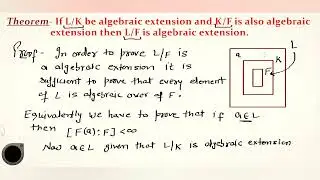 Theorem- If L/K be algebraic extension and K/F is also algebraic
extension then L/F is algebraic extension.
Proof - In order to prove L/F is
a algebraic extension it is
sufficient to prove that every element
of L is algebraic over F.
Equivalently we have to prove that if a∈L
then [F(a):F]<∞
Now a∈L given that L/K is algebraic extension
L
a
K
F